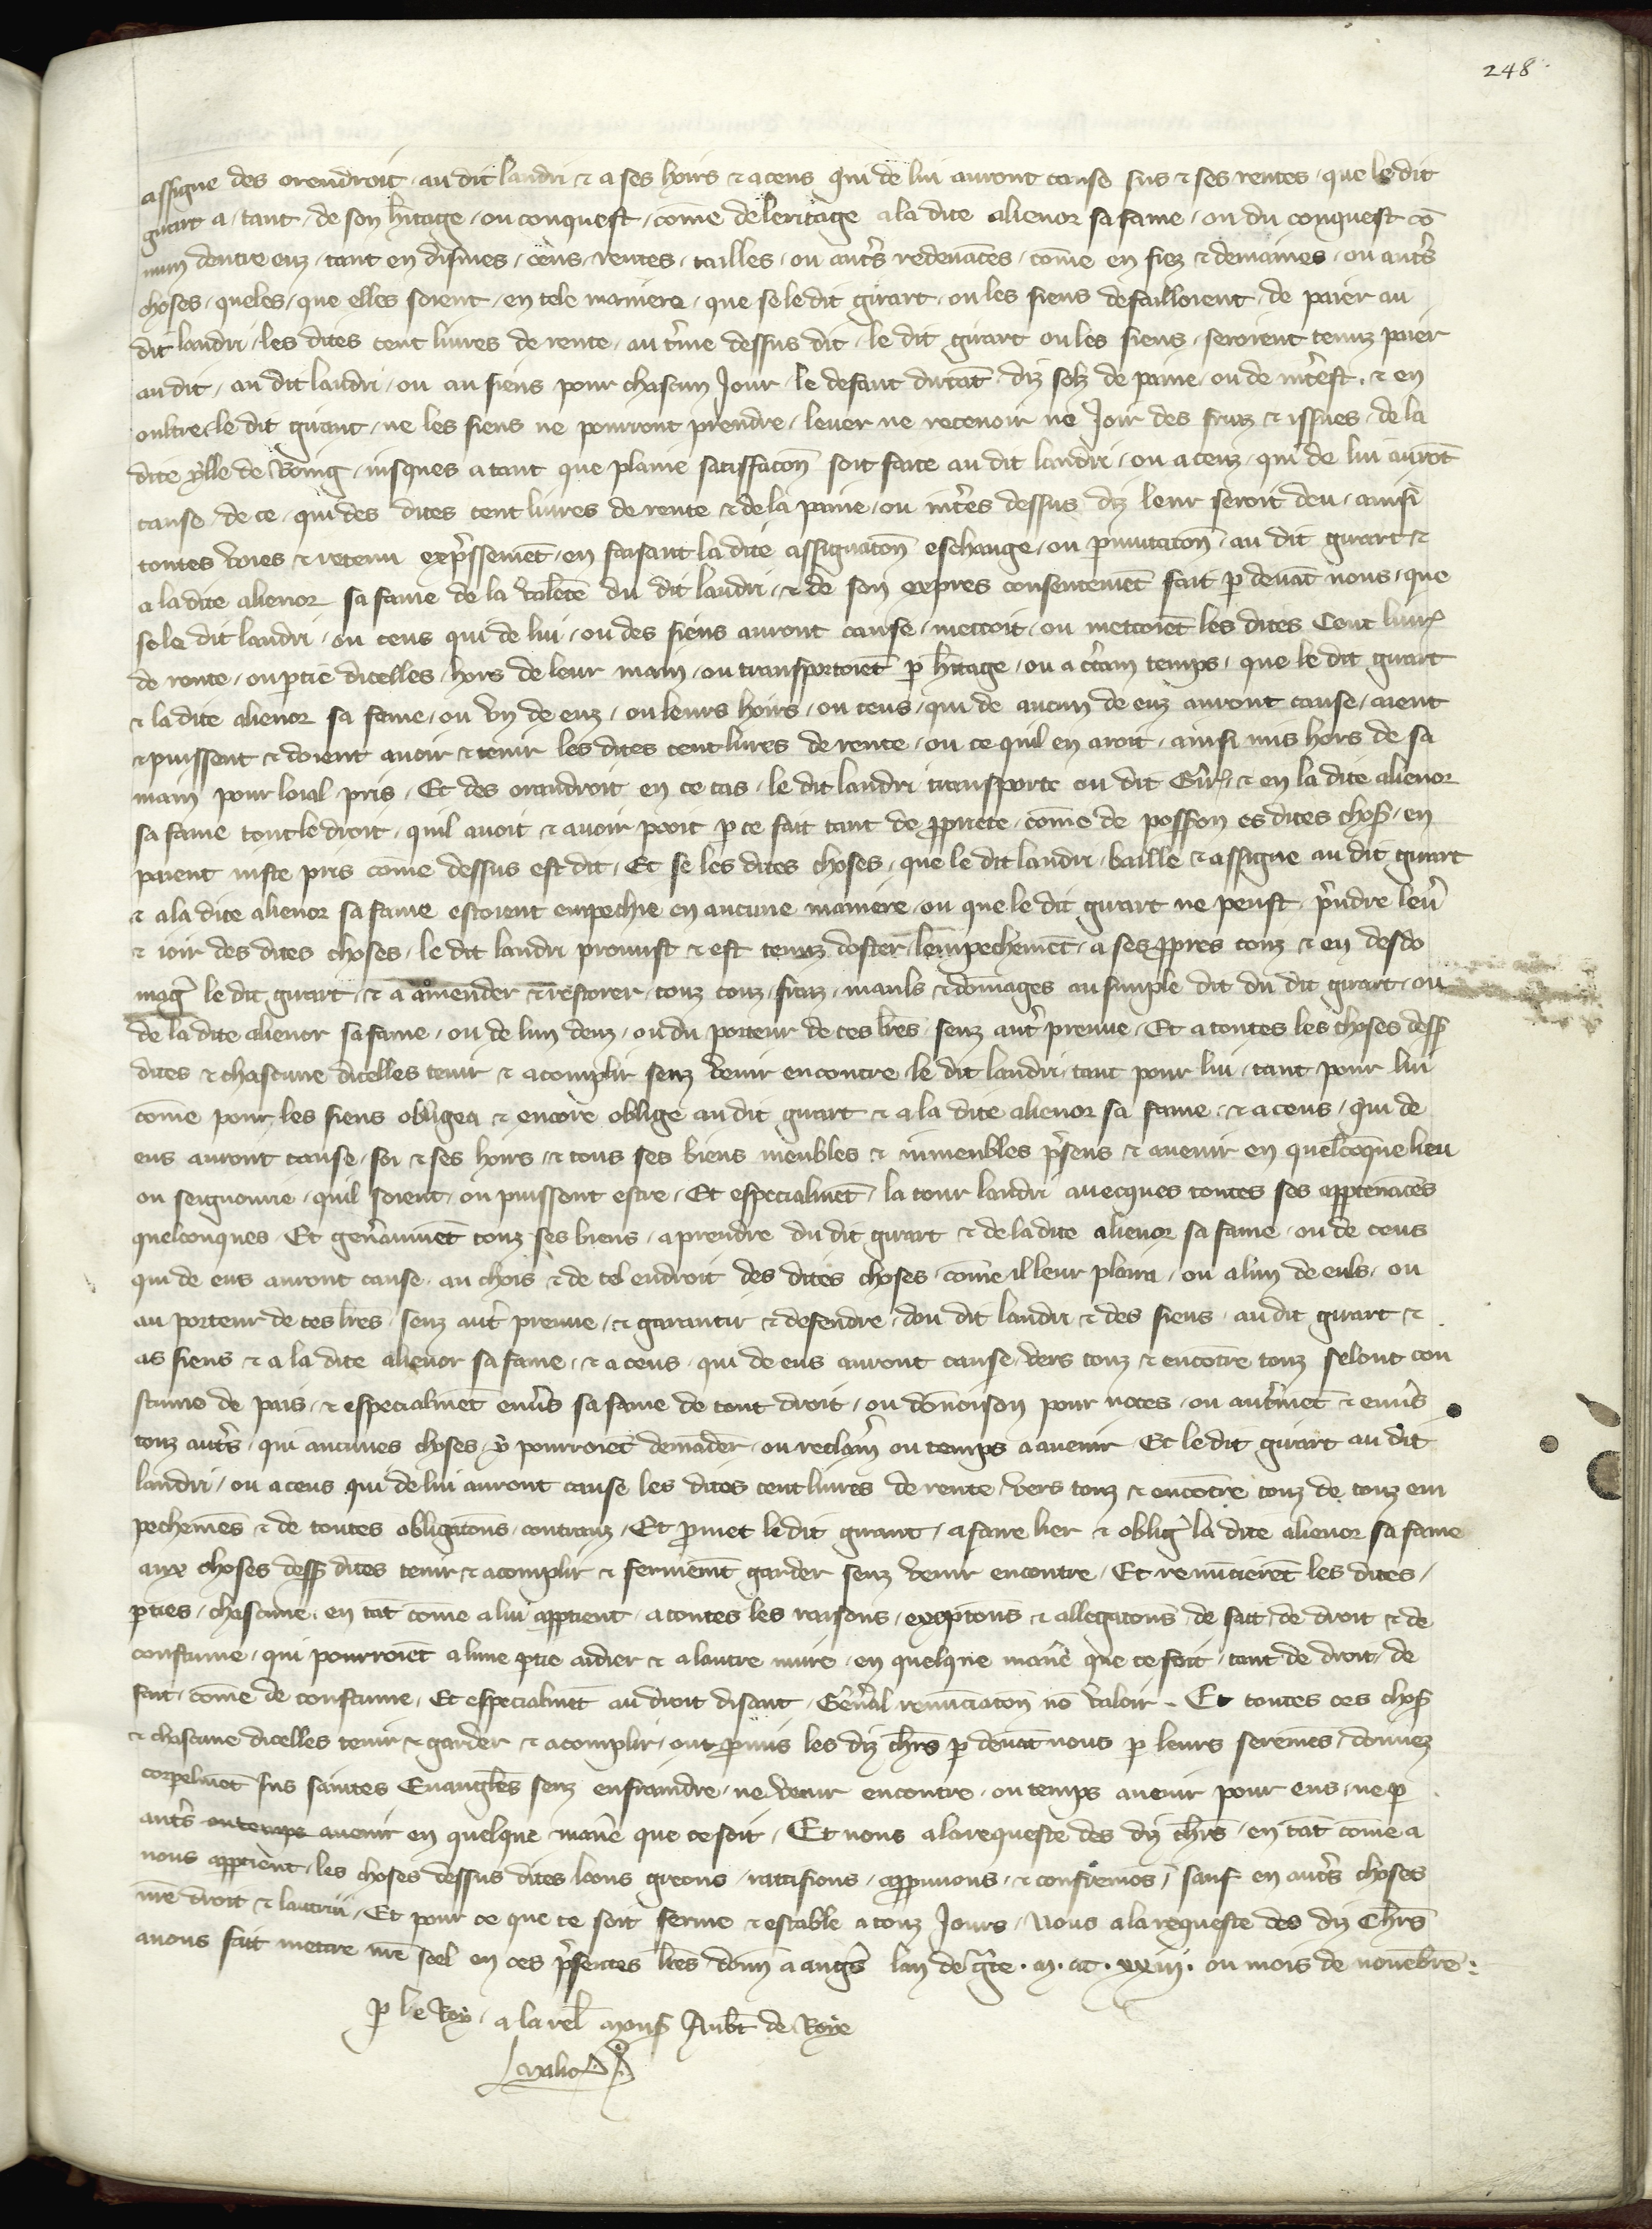 248
assigne des orendroit au dit landri et a ses hoirs et a ceus qui de lui auront cause sus et ses rentes que le dit
girart a tant de son h̅itage ou conquest com̅e de leritage a la dite alienor sa fame ou du conquest co̅
mun dentre euz tant en dismes cens rentes tailles ou aut̾s redeua̅ces com̅e en fiez et demaines ou aut̾s
choses queles que elles soient en tele maniere que se le dit girart ou les siens defailloient de paier au
dit landri les dites cent liures de rente au t̾me dessus dit le dit girart ou les siens seroient tenuz paier
au dit au dit landri ou au siens pour chascun Jour le defaut durant diz solz de paine ou de int̾est et en
oultre le dit girart ne les siens ne pourront prendre leuer ne receuoir ne Joir des fruiz et issues de la
dite ville de Boing iusques a tant que plaine satisfacon̅ soit faite au dit landri ou a ceuz qui de lui auro̅t
cause de ce qui des dites cent liures de rente et de la paine ou int̾es dessus diz leur seroit deu ainsi
toutes voies et retenu exp̾ssement̅ en faisant la dite assignacon̅ eschange ou p̱mutacon̅ au dit girart et
a la dite alienor sa fame de la volente̅ du dit landri et de son expres consentemen̅t fait p̱ deua̅t nous que
se le dit landri ou ceus qui de lui ou des siens auront cause mettoit ou mettoie̅t les dites Cent liur̾
de rente ou p̱tie dicelles hors de leur main ou transportoie̅t p̱ h̅itage ou a c̾tain temps que le dit girart
et la dite alienor sa fame ou vn de euz ou leurs hoirs ou ceus qui de aucun de euz auront cause aient
et puissent et doient auoir et tenir les dites cent liures de rente ou ce quil en aroit ainsi mis hors de sa
main pour loial pris Et des orandroit en ce cas le dit landri transporte ou dit Gir̾ et en la dite alienor
sa fame tout le droit quil auoit et auoir pooit p̱ ce fait tant de p̱priete com̅e de posson̅ es dites chos̾ en
paient iuste pris com̅e dessus est dit Et se les dites choses que le dit landri baille et assigne au dit girart
et a la dite alienor sa fame estoient empechie en aucune maniere ou que le dit girart ne peust p̾ndre leu̾
et ioir des dites choses le dit landri promist et est tenuz doster lempechemen̅t a ses p̱pres couz et en desdo
mag̾ le dit girart et a amender et restorer touz couz fraiz mauls et dom̅ages au simple dit du dit girart ou
de la dite alienor sa fame ou de lun deuz ou du porteur de ces l̅res senz aut̾ preuue Et a toutes les choses dess̾
dites et chascune dicelles tenir et acomplir senz venir encontre le dit landri tant pour lui tant pour lui
com̅e pour les siens obligea et encore oblige au dit girart et a la dite alienor sa fame et a ceus qui de
eus auront cause soi et ses hoirs et tous ses biens meubles et inmeubles p̾sens et auenir en quelco̅que lieu
ou seignourie quil soient ou puissent estre Et especialme̅t la tour landri auecques toutes ses app̱tena̅ces
quelconques Et gen̾aumen̅t touz ses biens a prendre du dit girart et de la dite alienor sa fame ou de ceus
qui de eus auront cause au chois et de tel endroit des dites choses com̅e il leur plaira ou a lun de euls ou
au porteur de ces l̅res senz aut̾ preuue et garantir et defendre dou dit landri et des siens au dit girart et
as siens et a la dite alienor sa fame et a ceus qui de eus auront cause vers touz et enco̅tre touz selont cou
stume de pais et especialmen̅t enu̾s sa fame de tout droit ou don̅oison pour noces ou aut̾men̅t et enu̾s
touz aut̾s qui aucunes choses y pourroie̅t dema̅der ou reclam̾ ou temps a auenir Et le dit girart au dit
landri ou a ceus qui de lui auront cause les dites cent liures de rente vers touz et enco̅tre touz de touz em
pecheme̅s et de toutes obligacon̅s contraiz Et p̱met le dit girart a faire lier et oblig̾ la dite alienor sa fame
aux choses dess̾ dites tenir et acomplir et fermeme̅nt garder senz venir encontre Et renu̅cierent̅ les dites
p̱ties chascune en ta̅t come a lui app̱tient a toutes les raisons excepcon̅s et allegacon̅s de fait de droit et de
coustume qui pourroie̅t a lune p̱tie aidier et a lautre nuire en quelque man̾e que ce soit tant de droit de
fait com̅e de coustume Et especialme̅t au droit disant Gen̾al renu̅ciacon̅ no̅ valoir Et toutes ces chos̾
et chascune dicelles tenir et garder et acomplir ont p̱mis les diz ch̅rs p̱ deua̅t nous p̱ leurs sereme̅s donnez
corpelme̅t sus saintes Euangl̅es senz enfraindre ne venir encontre ou temps auenir pour eus ne p̱
aut̾s ou temps auenir en quelque man̾e que ce soit Et nous a la requeste des diz ch̅rs en ta̅t com̅e a
nous app̱tient les choses dessus dites loons greons ratifions app̱uuons et conferme̅s sauf en aut̾s choses
n̅re droit et lautrui Et pour ce que ce soit ferme et estable a touz Jours Nous a la requeste des diz Ch̅rs
auons fait mettre n̅re seel en ces p̾sentes l̅res don̅n a ang̾s lan de g̾ce m. ccc. xxiii. ou mois de nouembre
p̱ le Roy a la rel̅ mons̾ Aub̅t de Roye